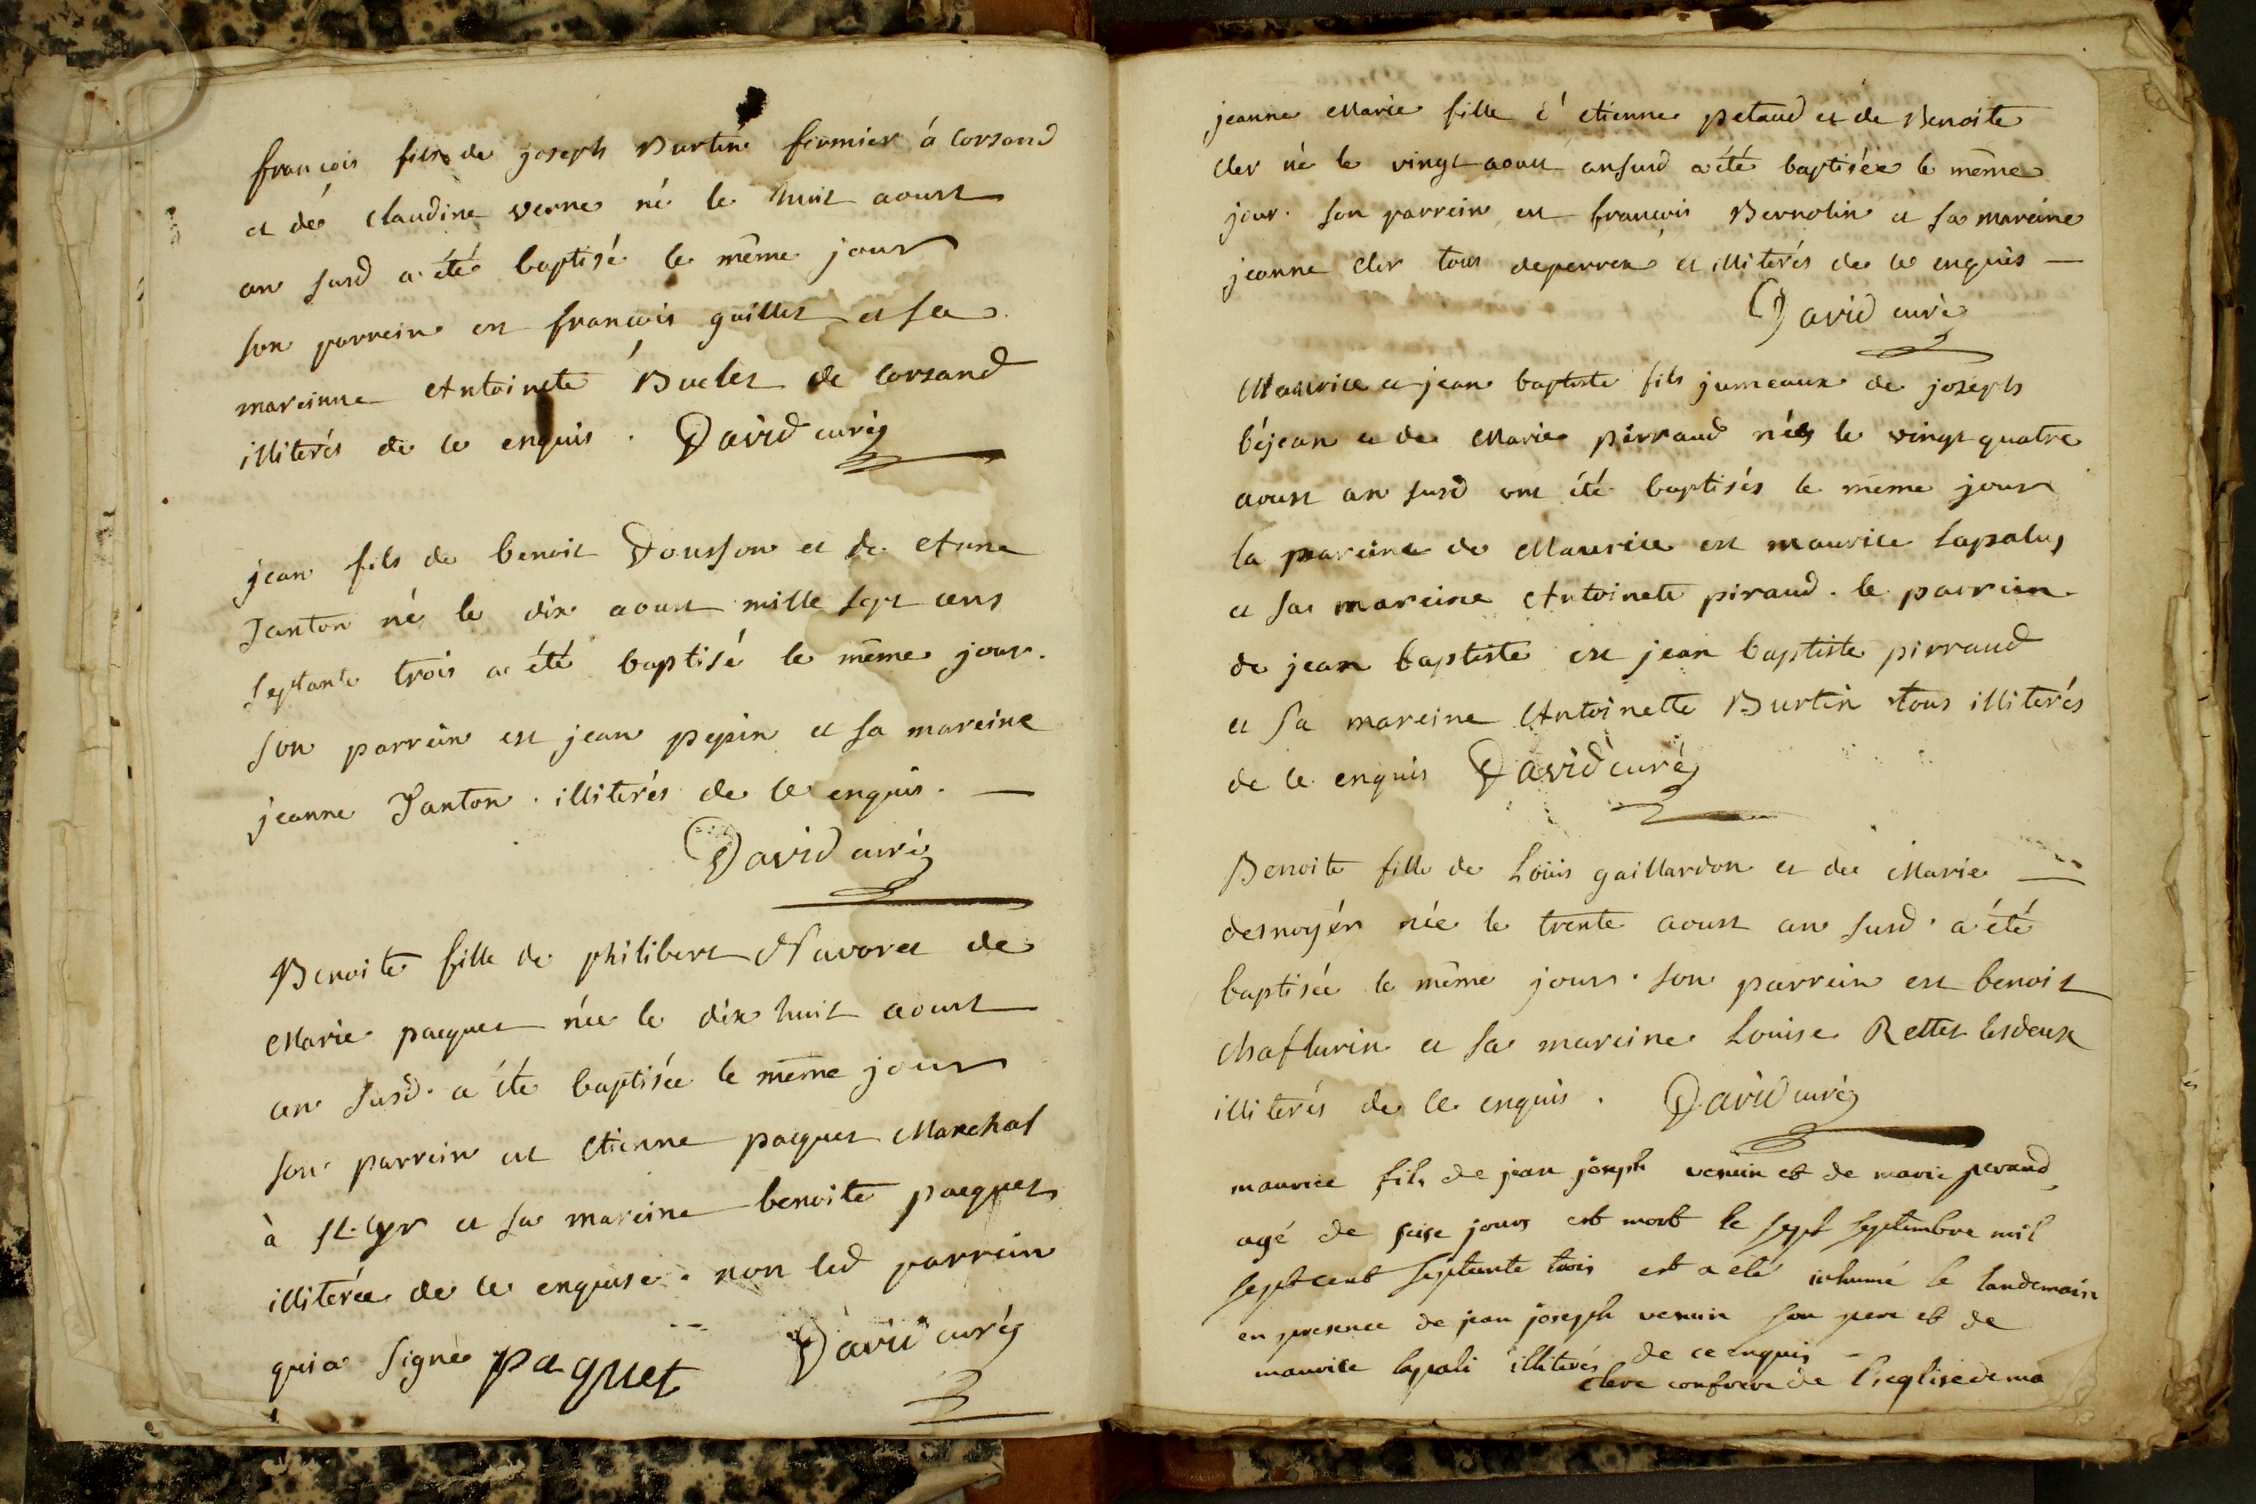 françois fils de joseph Burtin fermier á Corsand
et de Claudine verne né le huit aoust
an susd a été baptisé le même jour
son parrein est françois guillet et sa
mareinne Antoinete Buclet de Corsand
illiterés de ce enquis. David curé
jean fils de benoit Dousson et de Anne
Janton né le dix aoust mille sept cens
septante trois a été baptisé le même jour.
son parrein est jean pepin et sa mareine
jeanne Janton. illiterés de ce enquis. —
David curé
Benoite fille de philibert Navoret de
Marie paquet née le dix huit aoust
an susd. a éte baptisée le même jour
son parrein est Etienne paquet Marchal
à St. Cyr et sa mareine benoite paquet
illiterée de ce enquise. non led parrein
qui a signé paquet David curé
jeanne Marie fille d'etienne petaud et de Benoite
Cler né le vingt aoust ansusd a été baptisée le même
jour. son parrein est françois Bernolin et sa mareine
jeanne Cler tous deperrex et illiterés de ce enquis —
David curé
Maurice et jean baptiste fils jumeaux de joseph
béjean et de Marie pirraud nés le vingt quatre
aoust an susd ont été baptisés le même jour
la pareine de Maurice est maurice Lapalus
et sa mareine Antoinete piraud. le parrein
de jean baptiste est jean baptiste pirraud
et sa mareine Antoinette Burtin tous illiterés
de ce enquis David curé
Benoite fille de Loüis gaillardon et de Marie —
desnoyér née le trente aoust an susd. a été
baptisée le même jour. son parrein est benoit
Chaflurin et sa mareine Louise Rettet lesdeux
illiterés de ce enquis. David curé
maurice fils de jean joseph venuin et de marie perand
agé de seise jours est mort le sept septembre mil
sept cent septente trois est a eté inhumé le landemain
en presence de jean joseph venuin son pere et de
maurice lapali illiterés de ce enquis —
confrere de l'eglise de ma